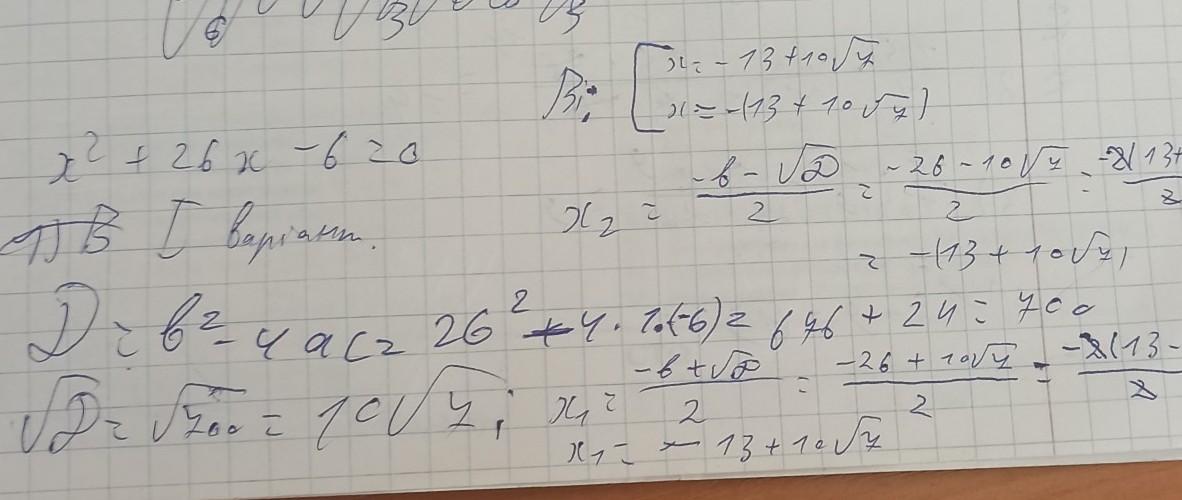 √6 √3 √3
x² + 26x - 6 = 0
1) В I варіант.
D = b² - 4ac = 26² - 4 · 1 · (-6) = 676 + 24 = 700
√D = √700 = 10√7;
x₁ = (-b + √D)/2 = (-26 + 10√7)/2 = -2(13 -/2
x₁ = -13 + 10√7
x₂ = (-b - √D)/2 = (-26 - 10√7)/2 = -2(13+/2
= -(13 + 10√7)
Ві: [ x = -13 + 10√7
x = -(13 + 10√7)